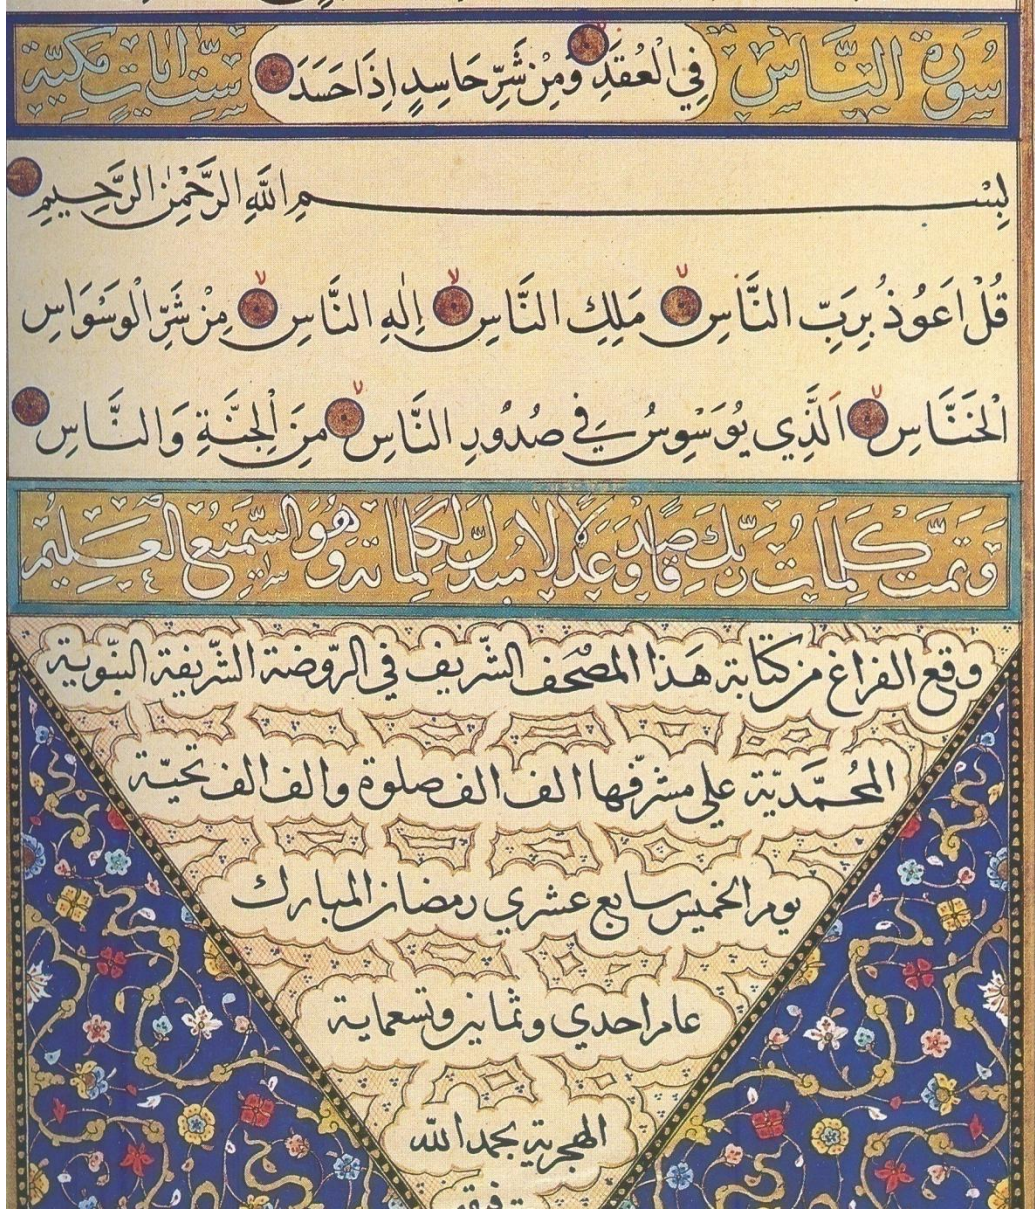 سُورَةُ النَّاسِ
فِي الْعُقَدِ وَمِنْ شَرِّ حَاسِدٍ اِذَا حَسَدَ
سِتُّ اٰيَاتٍ مَكِّيَّة
بِسْمِ اللّٰهِ الرَّحْمٰنِ الرَّحِيمِ
قُلْ اَعُوذُ بِرَبِّ النَّاسِ مَلِكِ النَّاسِ اِلٰهِ النَّاسِ مِنْ شَرِّ الْوَسْوَاسِ
الْخَنَّاسِ اَلَّذِي يُوَسْوِسُ فِي صُدُورِ النَّاسِ مِنَ الْجِنَّةِ وَالنَّاسِ
وَتَمَّتْ كَلِمَاتُ رَبِّكَ صِدْقًا وَعَدْلًا لَا مُبَدِّلَ لِكَلِمَاتِهِ وَهُوَ السَّمِيعُ الْعَلِيمُ
وقع الفراغ من كتابة هذا المصحف الشّريف في الرّوضة الشّريفة النبّوية
المُحمَّديّة علي مشرّفها الف الف صلوة والف الف تحيّة
يوم الخميس سابع عشري رمضان المبارك
عام احدي وثمانين وتسعماية
الهجرية بحمد الله